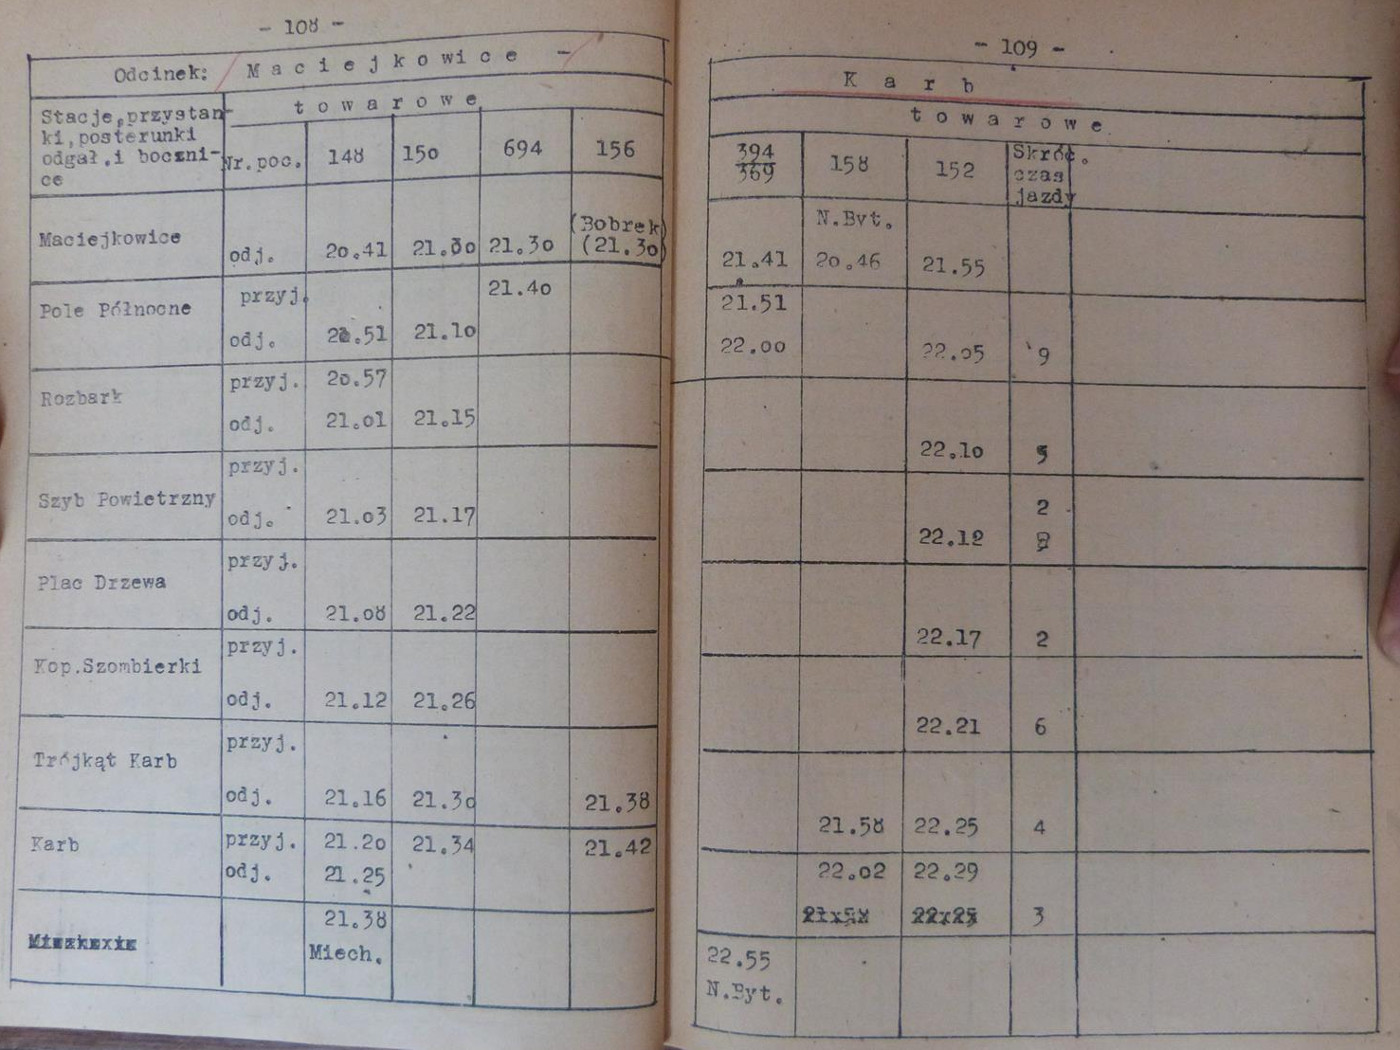 - 108 -
Odcinek: Maciejkowice -
Stacje, przystan-
ki, posterunki
odgał. i boczni-
ce
towarowe
Nr. poc. 148 150 694 156
Maciejkowice (Bobrek)
odj. 20.41 21.00 21.30 (21.30)
Pole Północne przyj. 21.40
odj. 20.51 21.10
Rozbark przyj. 20.57
odj. 21.01 21.15
Szyb Powietrzny przyj.
odj. 21.03 21.17
Plac Drzewa przyj.
odj. 21.08 21.22
Kop. Szombierki przyj.
odj. 21.12 21.26
Trójkąt Karb przyj.
odj. 21.16 21.30 21.38
Karb przyj. 21.20 21.34 21.42
odj. 21.25
21.38
Miech.
- 109 -
Karb
towarowe
394
369 158 152 Skróc.
czas
jazdy
N.Byt.
21.41 20.46 21.55
21.51
22.00 22.05 9
22.10 5
2
22.12
22.17 2
22.21 6
21.58 22.25 4
22.02 22.29
21x58 22x25 3
22.55
N.Byt.